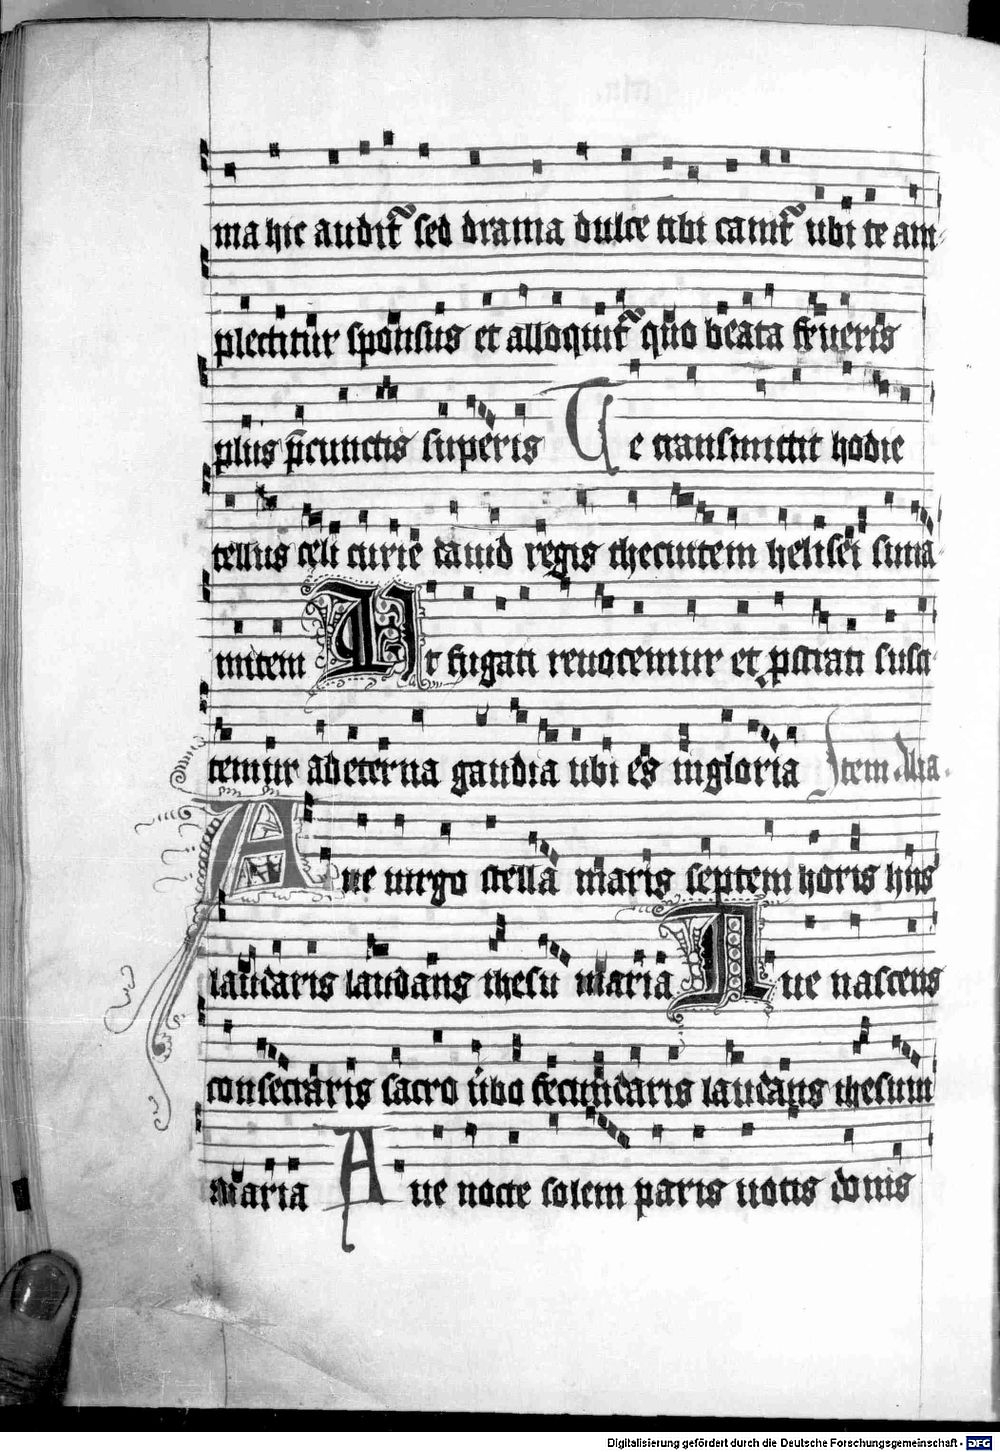 ma hic audit᷑ sed drama dulce tibi canit᷑ ubi te am-
plectitur sponsus et alloquit᷑ quo beata frueris
plus p̄cunctis superis Te transmittit hodie
tellus celi curie dauid regis thecuitem helisei suna-
mitem Ut fugati reuocemur et ꝓstrati susci-
temur ad eterna gaudia ubi es in gloria Item Alia.
Aue uirgo stella maris septem horis hiis
laudaris laudans ihesu maria Aue nascens
consecraris sacro ūbo fecundaris laudans ihesum
maria Aue nocte solem paris uotis donis
Digitalisierung gefördert durch die Deutsche Forschungsgemeinschaft - DFG